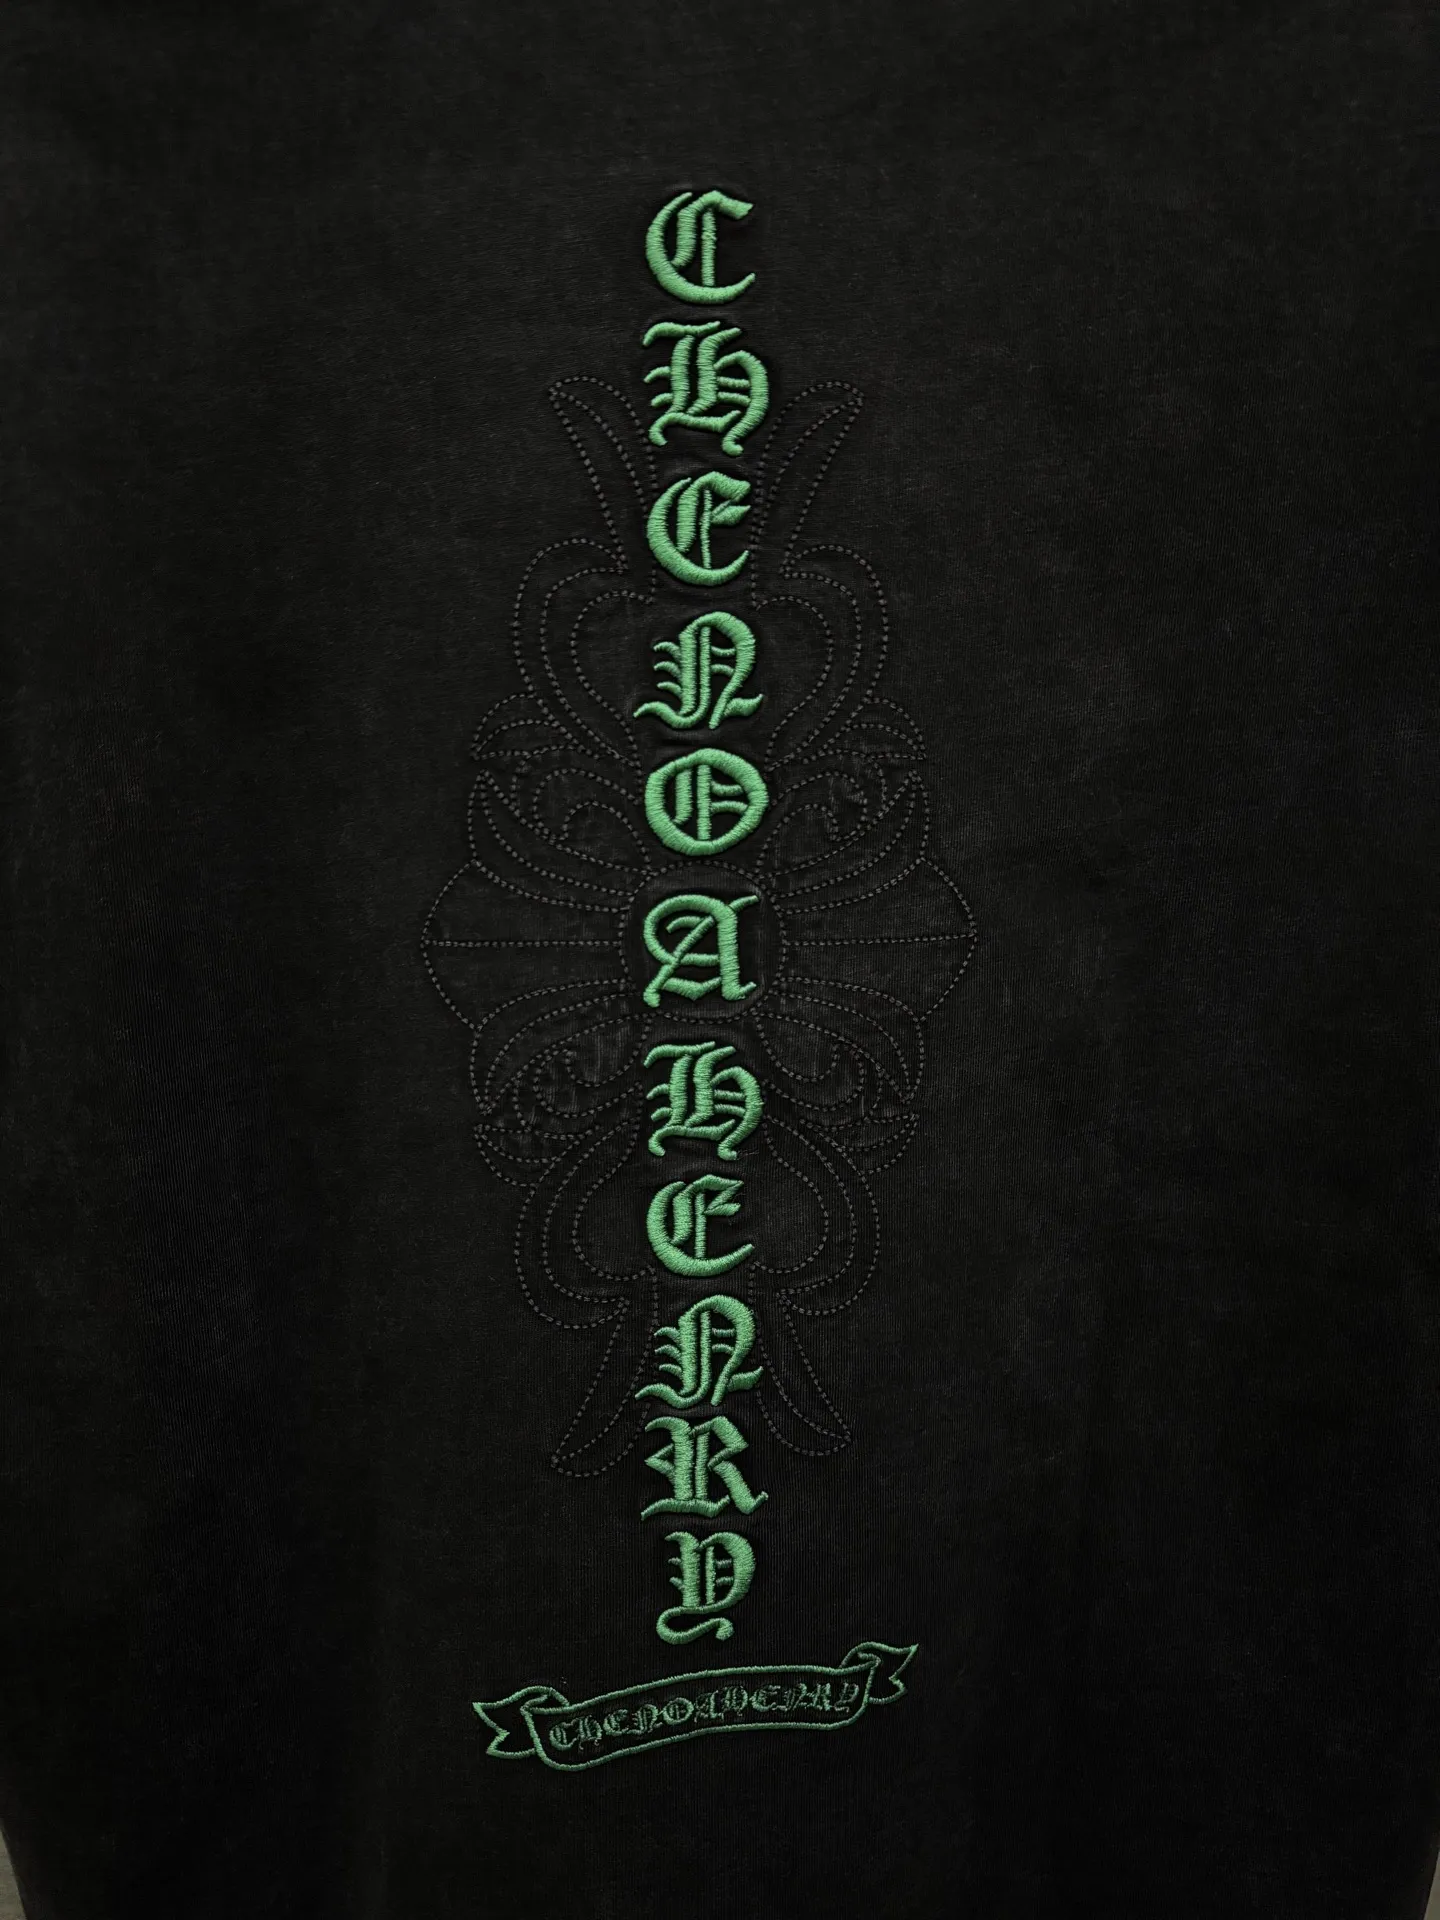 CHENOAHENRY
CHENOAHENRY